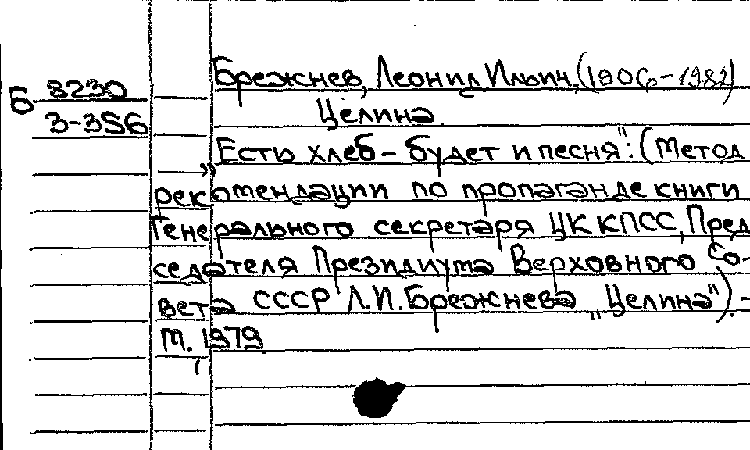 Б 3230
3-356
Брежнев, Леонид Ильич, (1906-1982)
Целина.
„Есть хлеб - будет и песня": (Метод
рекомендации по пропаганде книги
Генерального секретаря ЦК КПСС, Пред
седателя Президиума Верховного Со-
вета СССР Л.И. Брежнева „Целина").-
Т. 1979